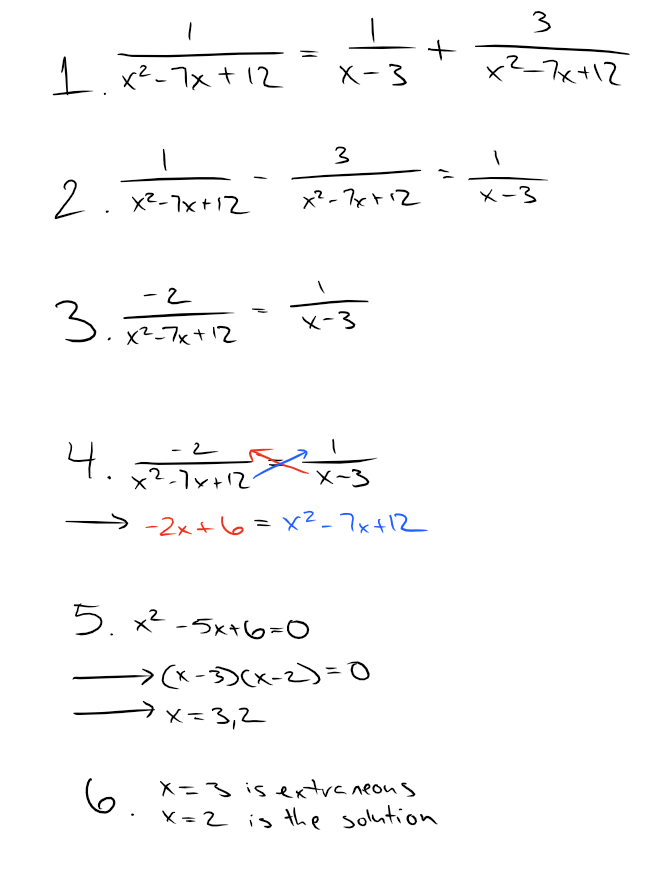 1. 1/(x²-7x+12) = 1/(x-3) + 3/(x²-7x+12)
2. 1/(x²-7x+12) - 3/(x²-7x+12) = 1/(x-3)
3. -2/(x²-7x+12) = 1/(x-3)
4. -2/(x²-7x+12) = 1/(x-3)
→ -2x+6 = x²-7x+12
5. x²-5x+6=0
→ (x-3)(x-2)=0
→ x=3,2
6. x=3 is extraneous
x=2 is the solution